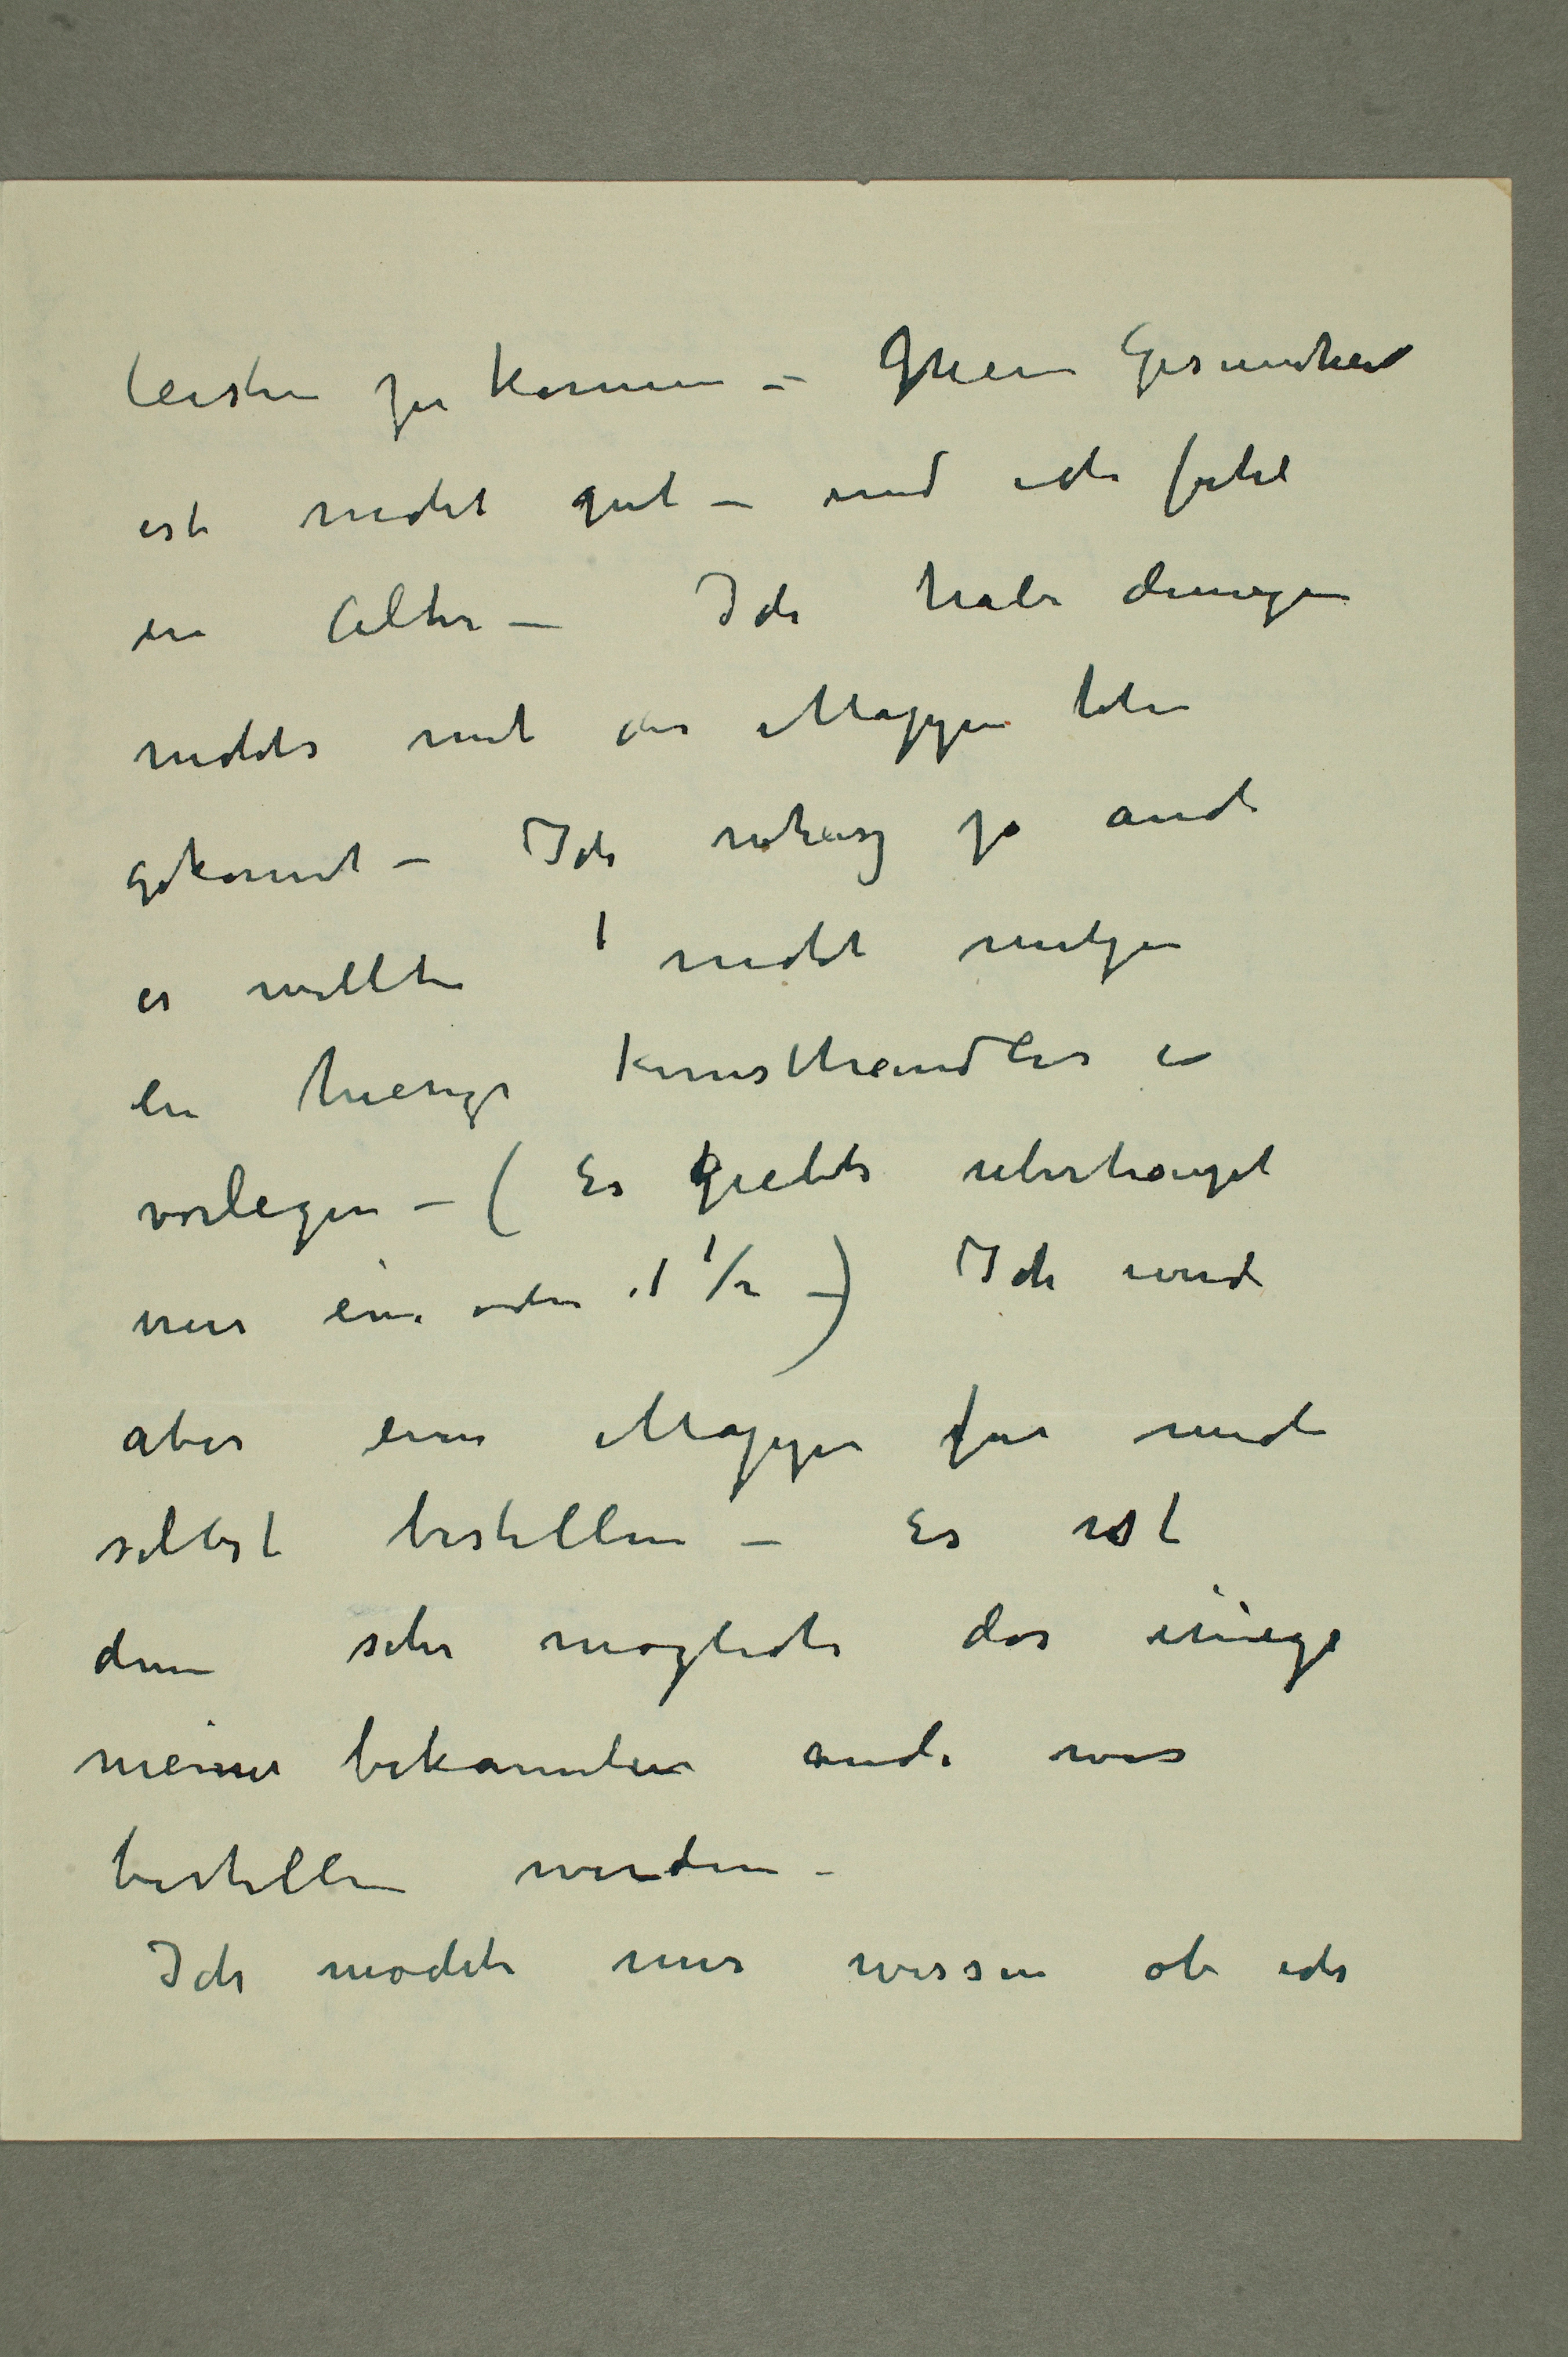 leisten zu können – Meine Gesundheit
ist nicht gut – und ich fühl
en Alter – Ich habe deswegen
nichts mit der Mappen thun
gekonnt – Ich weisz ja auch
es wollte nicht nützen
en hiesige Kunsthändler es
vorlegen – (Es giebts überhaupt
nur ein oder 1 1/2 –) Ich werde
aber eine Mappe für mich
selbst bestellen – Es ist
denn sehr möglich das einige
meiner bekannten auch was
bestellen werden –
Ich möchte nur wissen ob ich